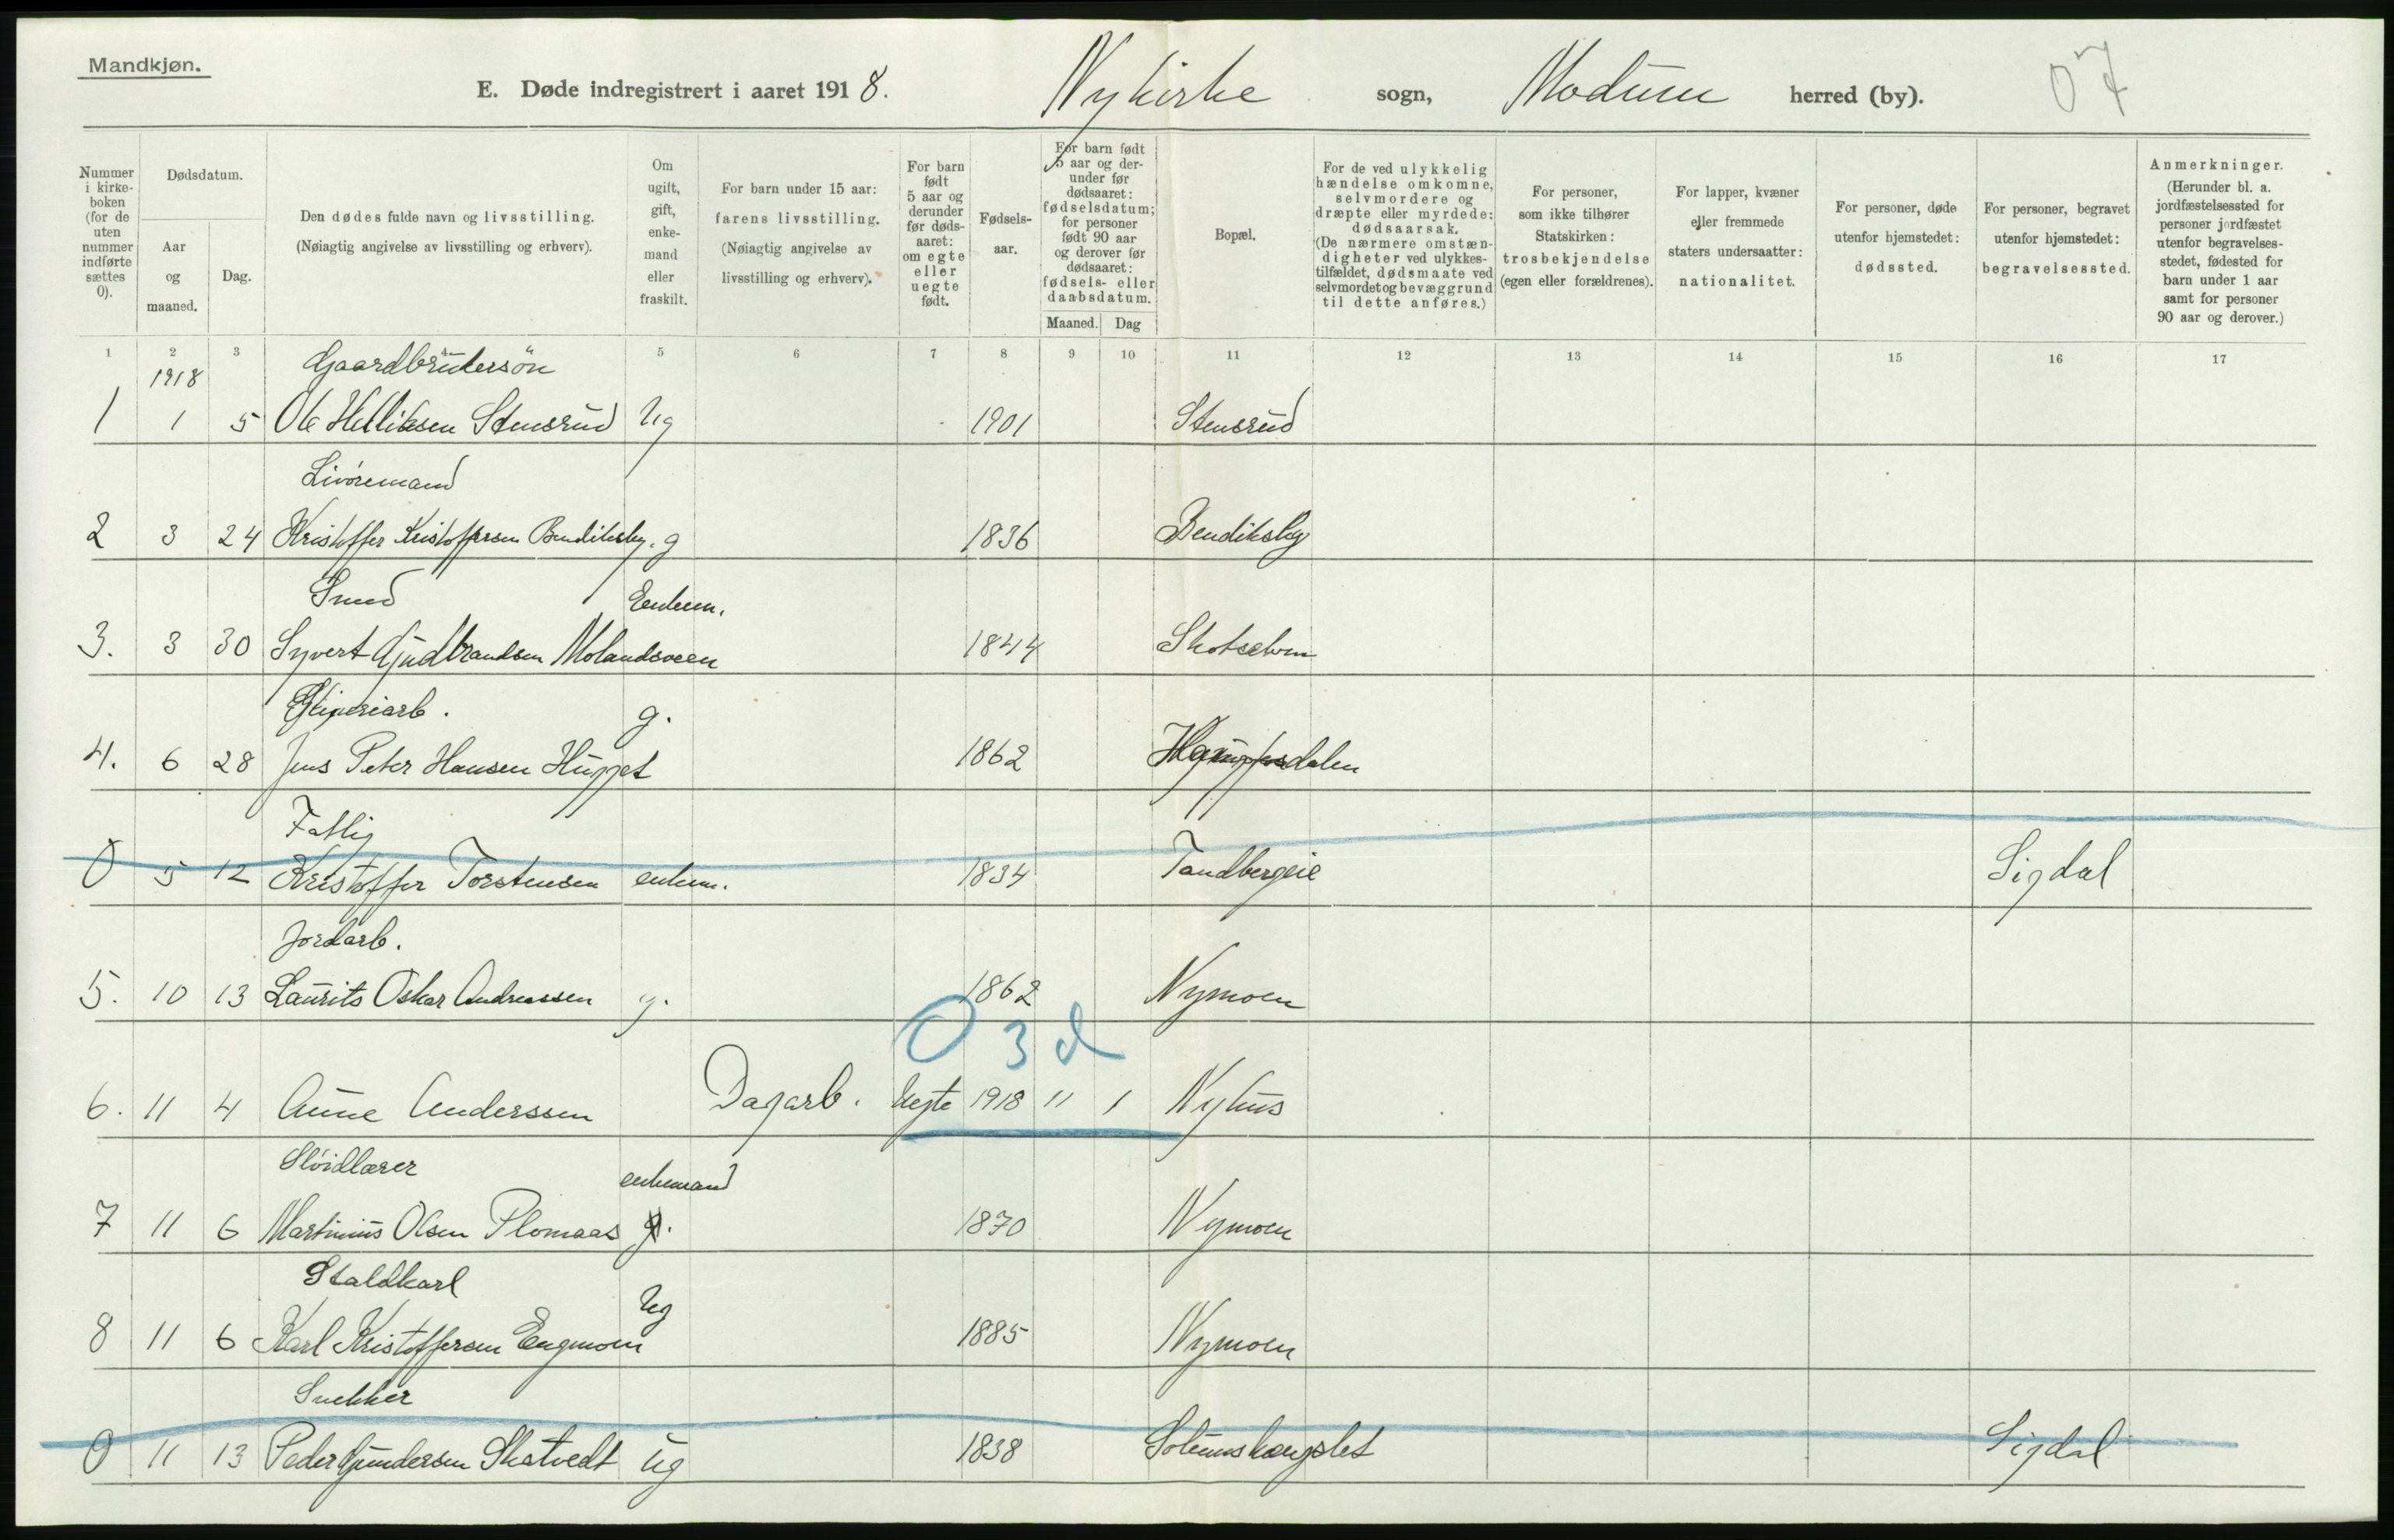 Mandkjøn.
E. Døde indregistrert i aaret 1918. Nykirke sogn, Modum herred (by). 07
Nummer i kirke- boken (for de uten nummer indførte sættes 0).
Dødsdatum.
Aar og maaned.
Dag.
Den dødes fulde navn og livsstilling. (Nøiagtig angivelse av livsstilling og erhverv).
Om ugift, gift, enke- mand eller fraskilt.
For barn under 15 aar: farens livsstilling. (Nøiagtig angivelse av livsstilling og erhverv).
For barn født 5 aar og derunder før døds- aaret: om egte eller uegte født.
Fødsels- aar.
For barn født 5 aar og der- under før dødsaaret: fødselsdatum; for personer født 90 aar og derover før dødsaaret: fødsels- eller daabsdatum.
Maaned. Dag
Bopæl.
For de ved ulykkelig hændelse omkomne, selvmordere og dræpte eller myrdede: dødsaarsak. (De nærmere omstæn- digheter ved ulykkes- tilfældet, dødsmaate ved selvmordet og bevæggrund til dette anføres.)
For personer, som ikke tilhører Statskirken: trosbekjendelse (egen eller forældrenes).
For lapper, kvæner eller fremmede staters undersaatter: nationalitet.
For personer, døde utenfor hjemstedet: dødssted.
For personer, begravet utenfor hjemstedet: begravelsessted.
Anmerkninger. (Herunder bl. a. jordfæstelsessted for personer jordfæstet utenfor begravelses- stedet, fødested for barn under 1 aar samt for personer 90 aar og derover.)
1 2 3 5 6 7 8 9 10 11 12 13 14 15 16 17
1918 Gaardbrukersøn
1 1 5 Ole Helliksen Stensrud Ug 1901 Stensrud
Livøremand
2 3 24 Kristoffer Kristoffersen Bendiksby. g 1836 Bendiksby
Smed Enkem.
3. 3 30 Syvert Gudbrandsen Molandsveen 1844 Skotselven
Sliperiarb. g.
4. 6 28 Jens Peter Hansen Hugget 1862
Fattig
0 5 12 Kristoffer Torstensen enkem. 1834 Tandbergeie Sigdal
Jordarb.
5. 10 13 Laurits Oskar Andreassen g. 1862 Nymoen
0 3 d
6. 11 4 Anne Anderssen Dagarb. Uegte 1918 11 1 Nyhus
Sløidlærer enkemand
7 11 6 Martinius Olsen Plomaas g. 1870 Nymoen
Staldkarl Ug
8 11 6 Karl Kristoffersen Engmoen 1885 Nymoen
Snekker
0 11 13 Peder Gundersen Skatvedt ug 1838 Sigdal